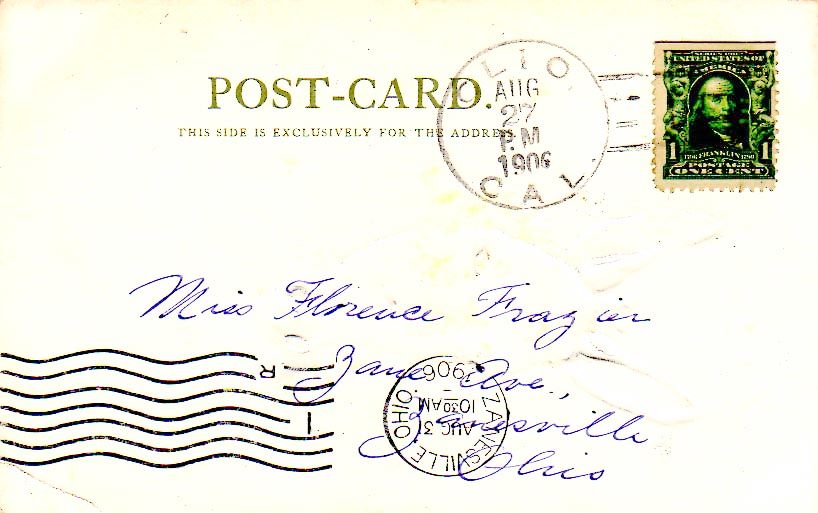 POST-CARD.
THIS SIDE IS EXCLUSIVELY FOR THE ADDRESS.
OLIO,
AUG
27
P.M
1906
CAL.
SERIES 1902
UNITED STATES OF
AMERICA
1706 FRANKLIN 1790
1 POSTAGE 1
ONE CENT
Miss Florence Frazier
Zane Ave.,
Zanesville
Ohio
R
I
ZANESVILLE
AUG 3
10 30 AM
1906
OHIO